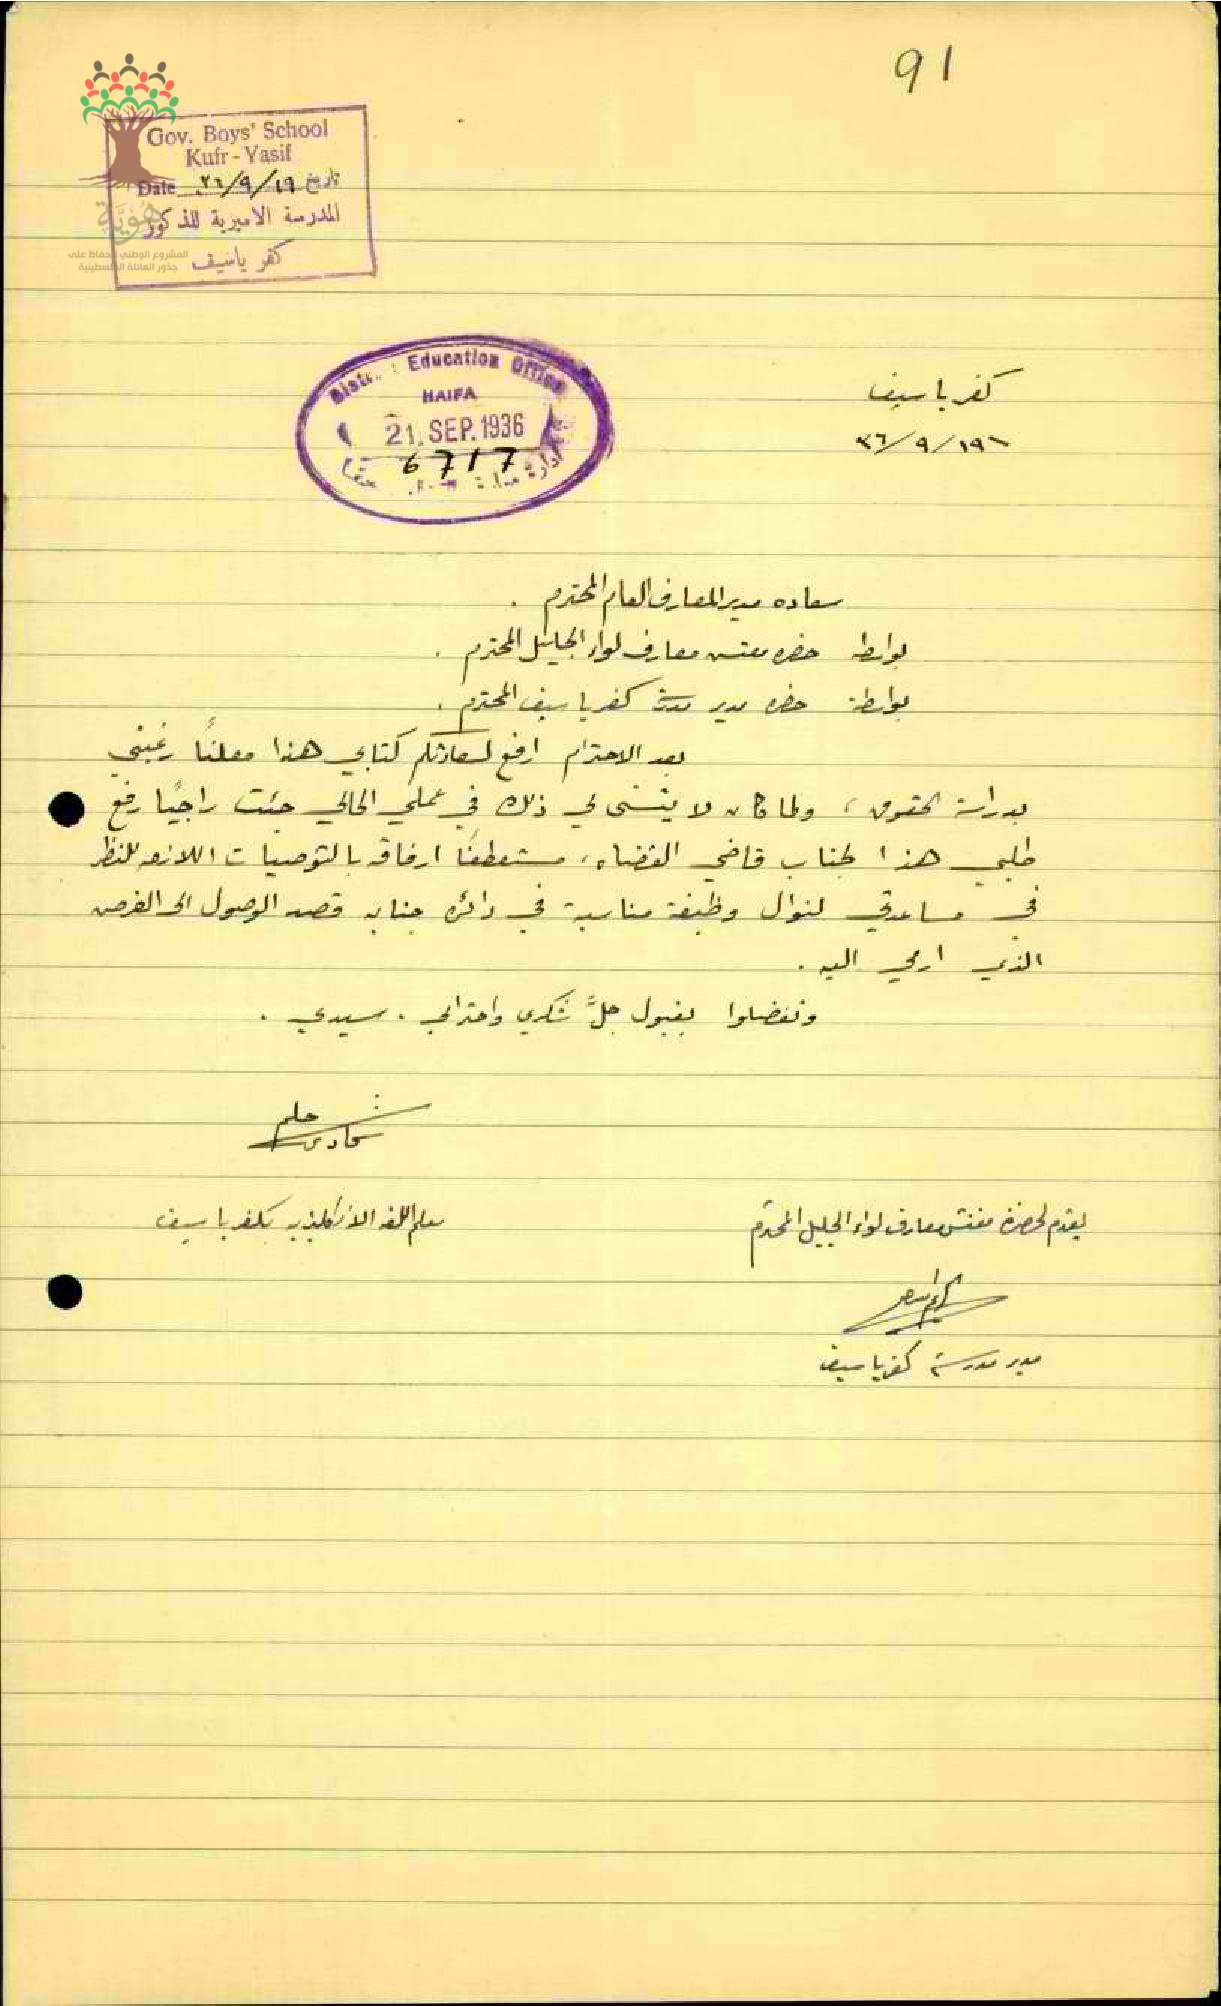 91
Gov. Boys' School
Kufr-Yasif
Date ٣٦/٩/١٩ تاريخ
المدرسة الاميرية للذكور
كفر ياسيف
هُوِيَّة
المشروع الوطني للحفاظ على
جذور العائلة الفلسطينية
District Education Office
HAIFA
21. SEP. 1936
6717
كفر ياسيف
٣٦/٩/١٩
سعاده مدير المعارف العام المحترم .
بواسطة حضره مفتش معارف لواء الجليل المحترم .
بواسطة حضره مدير مدرسة كفر ياسيف المحترم .
بعد الاحترام ارفع لسعادتكم كتابي هذا معلنًا رغبتي
بدراسة الحقوق ، ولما كان لا يتسنى لي ذلك في عملي الحالي جئت راجيًا رفع
طلبي هذا لجناب قاضي القضاه ، مستعطفًا ارفاقه بالتوصيات اللازمه للنظر
في مساعدتي لنوال وظيفة مناسبة في دائرة جنابه قصد الوصول الى الغرض
الذي ارمي اليه .
وتفضلوا بقبول جلَّ شكري واحترامي . سيدي .
حلم
معلم اللغه الانكليزيه بكفر ياسيف
يقدم لحضرة مفتش معارف لواء الجليل المحترم
مدير مدرسة كفر ياسيف